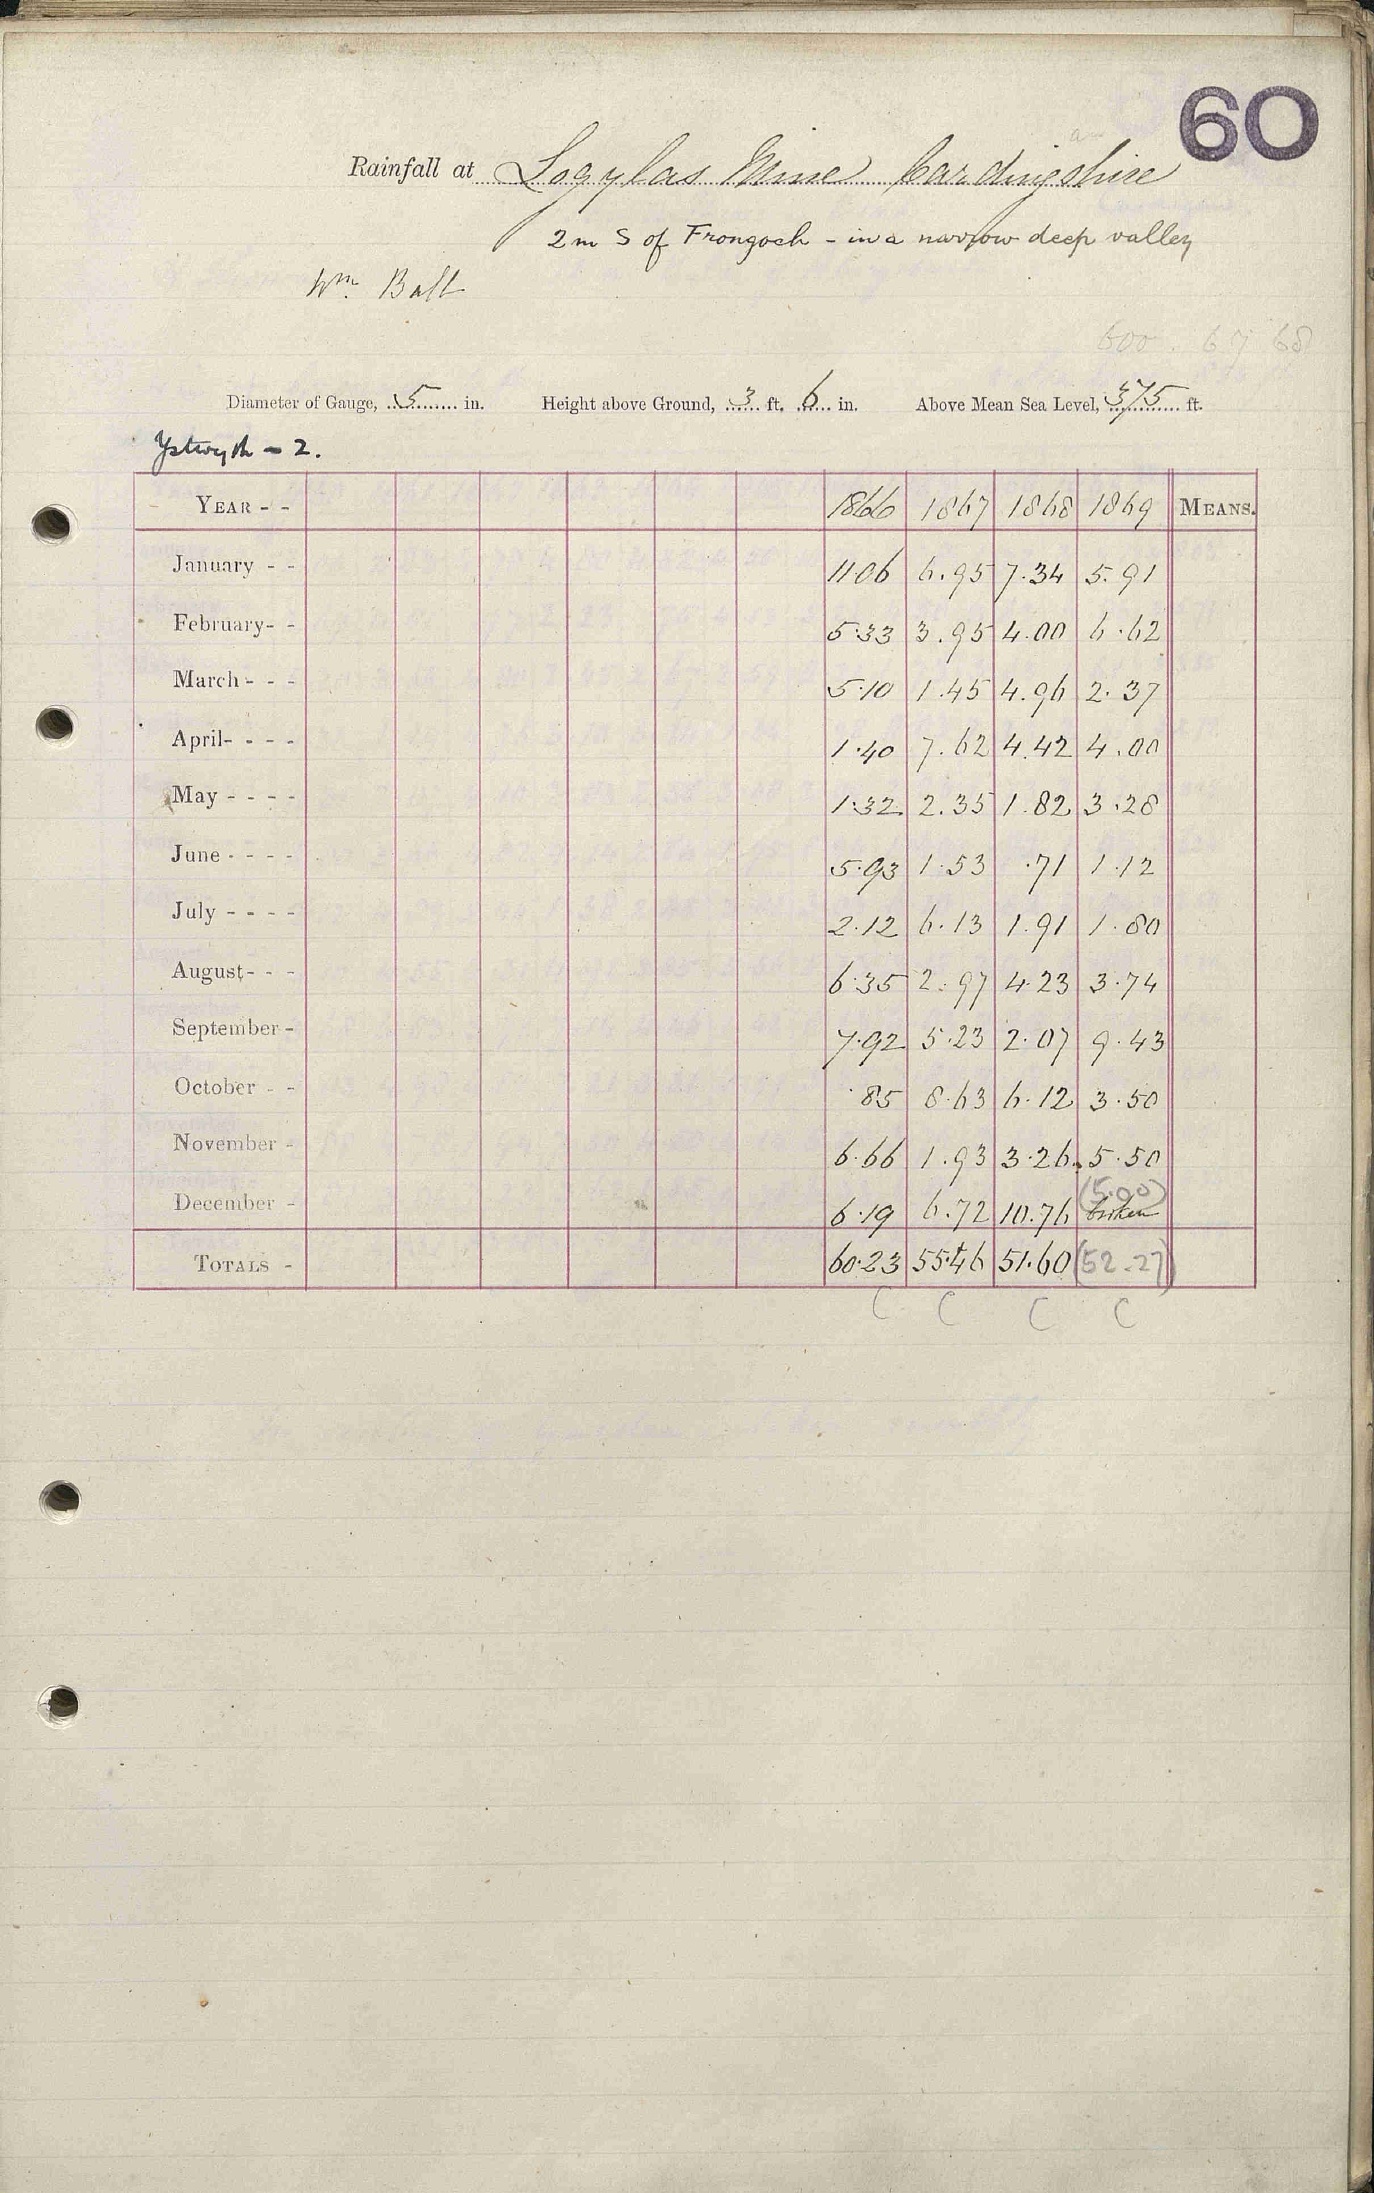 60
Rainfall at Logylas Mine Cardingshire
2 m S of Frongoch - in a narrow deep valley
Wm. Ball
600 . 67 68
Diameter of Gauge, 5 in. Height above Ground, 3 ft. 6 in. Above Mean Sea Level, 375 ft.
Ystwyth - 2.
YEAR - - 1866 1867 1868 1869 MEANS.
January - - 11.06 6.95 7.34 5.91
February- - 5.33 3.95 4.00 6.62
March - - - 5.10 1.45 4.96 2.37
April- - - - 1.40 7.62 4.42 4.00
May - - - - 1.32 2.35 1.82 3.28
June - - - - 5.93 1.53 .71 1.12
July - - - - 2.12 6.13 1.91 1.80
August- - - 6.35 2.97 4.23 3.74
September - 7.92 5.23 2.07 9.43
October - - .85 8.63 6.12 3.50
November - 6.66 1.93 3.26 5.50
December - 6.19 6.72 10.76 (5.00) broken
TOTALS - 60.23 55.46 51.60 (52.27)
C C C C